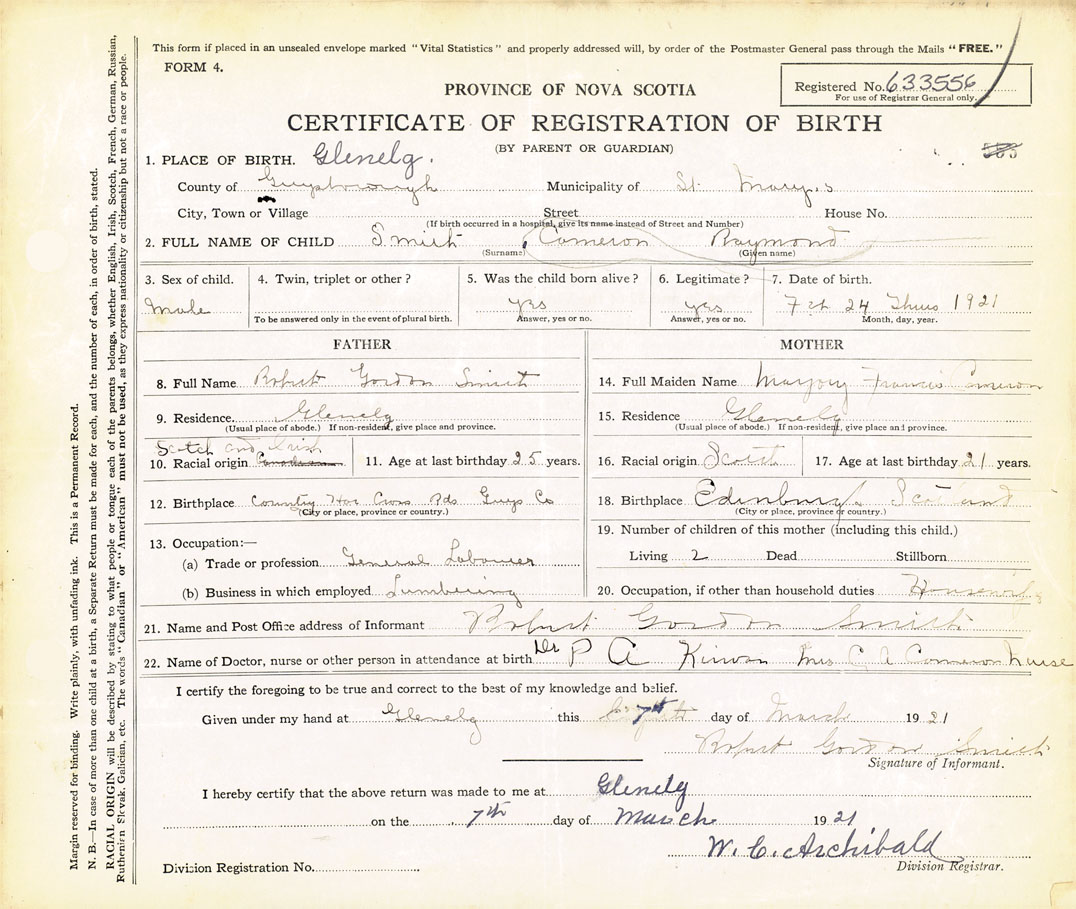 This form if placed in an unsealed envelope marked "Vital Statistics" and properly addressed will, by order of the Postmaster General pass through the Mails "FREE."
FORM 4.
Registered No. 633556
For use of Registrar General only.
PROVINCE OF NOVA SCOTIA
CERTIFICATE OF REGISTRATION OF BIRTH
(BY PARENT OR GUARDIAN)
1. PLACE OF BIRTH. Glenelg.
County of Guysborough Municipality of St. Mary,s
City, Town or Village Street House No.
(If birth occurred in a hospital, give its name instead of Street and Number)
2. FULL NAME OF CHILD Smith, Cameron Raymond
(Surname) (Given name)
3. Sex of child. 4. Twin, triplet or other? 5. Was the child born alive? 6. Legitimate? 7. Date of birth.
Male yes yes Feb 24 Thurs 1921
To be answered only in the event of plural birth. Answer, yes or no. Answer, yes or no. Month, day, year.
FATHER MOTHER
8. Full Name Robert Gordon Smith
14. Full Maiden Name Marjory Francis Cameron
9. Residence. Glenelg
15. Residence Glenelg
(Usual place of abode.) If non-resident, give place and province.
(Usual place of abode.) If non-resident, give place and province.
Scotch and Irish
10. Racial origin Canadian 11. Age at last birthday 25 years.
16. Racial origin Scotch 17. Age at last birthday 21 years.
12. Birthplace Country Har Cross Rds Guys Co
(City or place, province or country.)
18. Birthplace Edinburgh Scotland
(City or place, province or country.)
13. Occupation:—
(a) Trade or profession General Labourer
(b) Business in which employed Lumbering
19. Number of children of this mother (including this child.)
Living 2 Dead Stillborn
20. Occupation, if other than household duties Housewife
21. Name and Post Office address of Informant Robert Gordon Smith
22. Name of Doctor, nurse or other person in attendance at birth Dr P A Kirwan Mrs C A Cameron Nurse
I certify the foregoing to be true and correct to the best of my knowledge and belief.
Given under my hand at Glenelg this 7th day of March 1921
Robert Gordon Smith
Signature of Informant.
I hereby certify that the above return was made to me at Glenelg
on the 7th day of March 1921
W. C. Archibald
Division Registrar.
Division Registration No.
Margin reserved for binding. Write plainly, with unfading ink. This is a Permanent Record.
N. B.—In case of more than one child at a birth, a Separate Return must be made for each, and the number of each, in order of birth, stated.
RACIAL ORIGIN will be described by stating to what people or tongue each of the parents belongs, whether English, Irish, Scotch, French, German, Russian,
Ruthenian, Slovak, Galician, etc. The words "Canadian" or "American" must not be used, as they express nationality or citizenship but not a race or people.